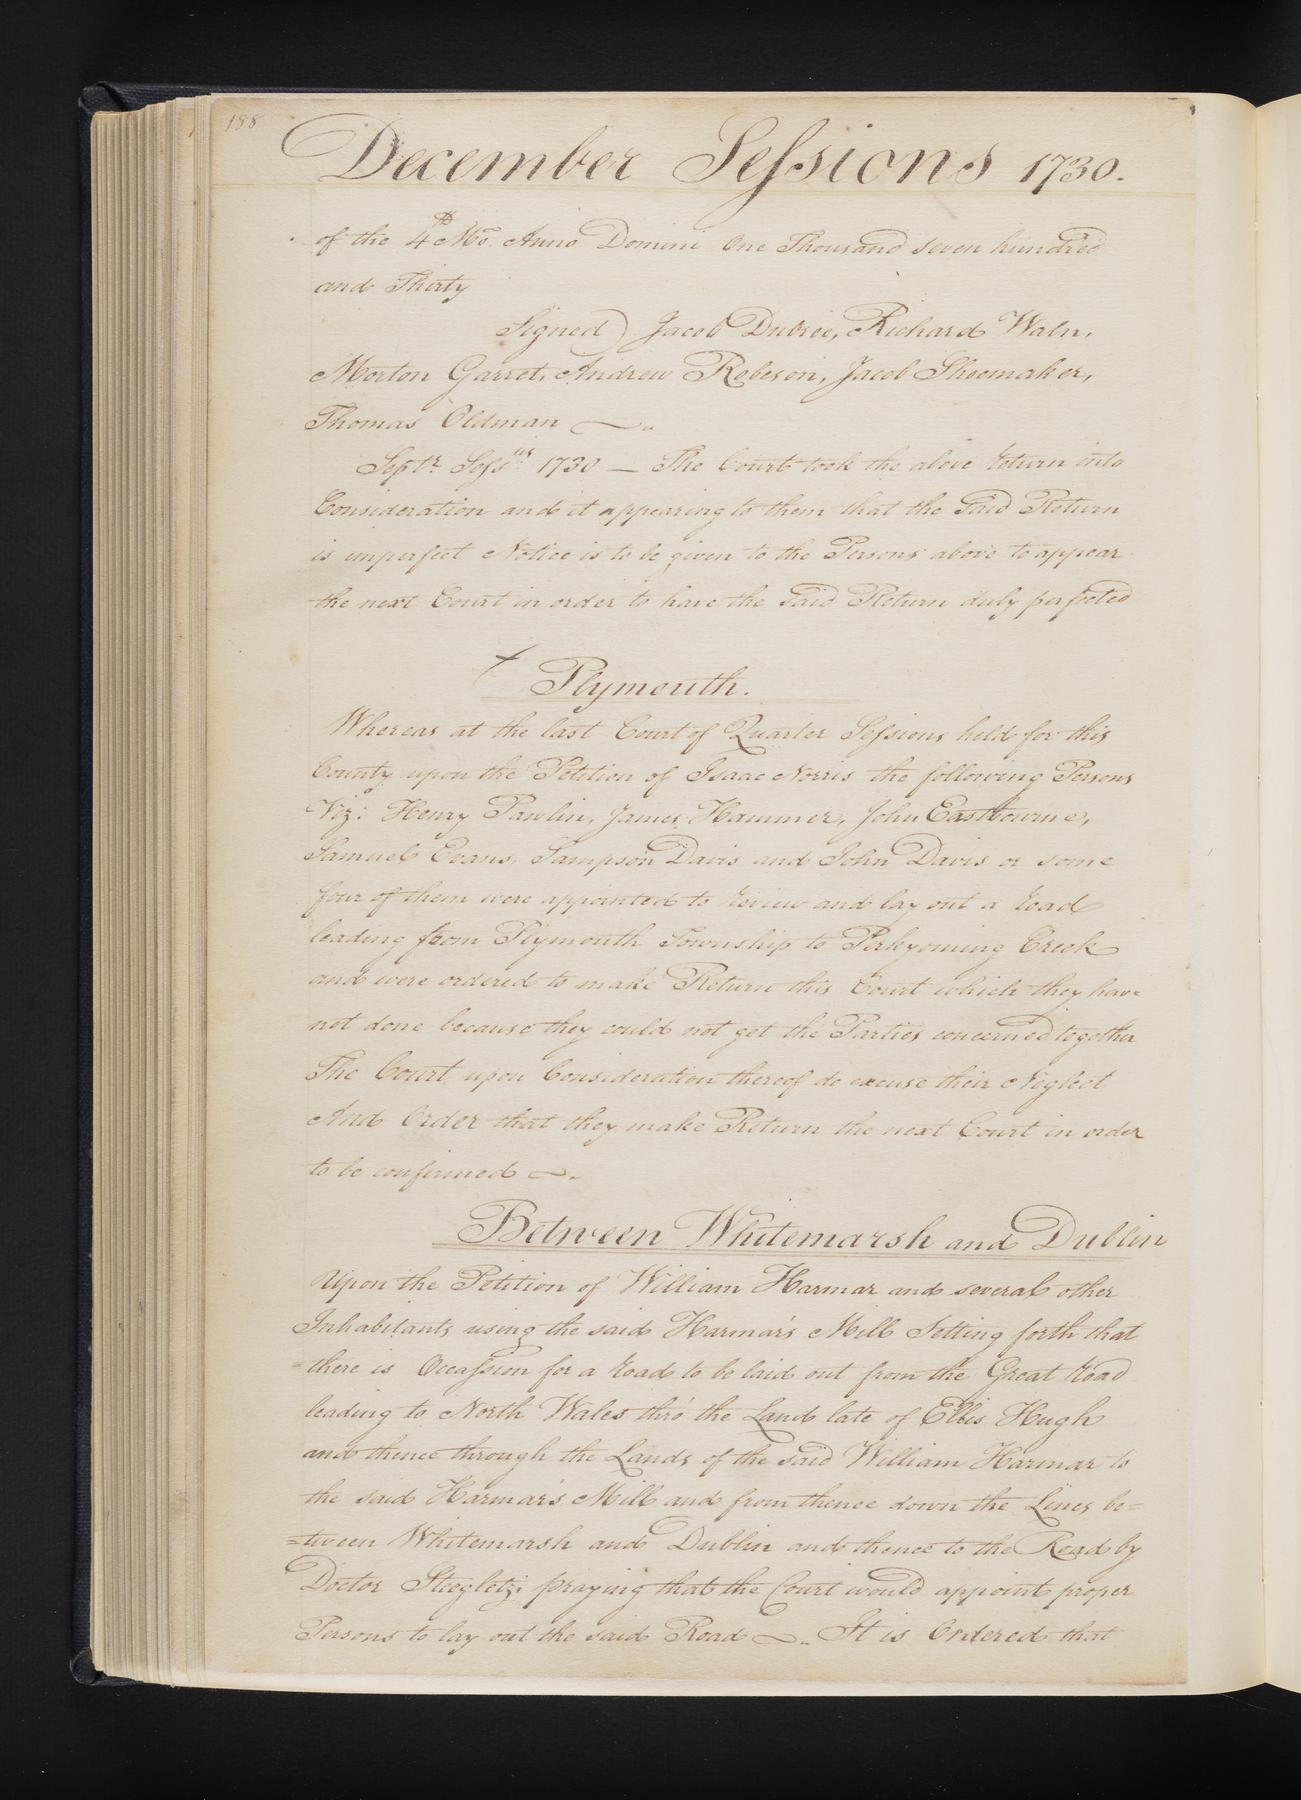 188
December Sessions 1730.
of the 4th Mo. Anno Domini One Thousand seven hundred
and Thirty
Signed) Jacob Dubree, Richard Waln,
Morton Garret, Andrew Robeson, Jacob Shoemaker,
Thomas Oldman
Septr. Sessns. 1730 — The Court took the above return into
Consideration and it appearing to them that the Said Return
is imperfect Notice is to be given to the Persons above to appear
the next Court in order to have the Said Return duly perfected
Plymouth.
Whereas at the last Court of Quarter Sessions held for this
County upon the Petition of Isaac Norris the following Persons
Viz: Henry Pawlin, James Hammer, John Eastbourne,
Samuel Evans, Sampson Davis and John Davis or some
four of them were appointed to review and lay out a road
leading from Plymouth Township to Perkyoming Creek
and were ordered to make Return this Court which they have
not done because they could not get the Parties concerned together
The Court upon Consideration thereof do excuse their Neglect
And Order that they make Return the next Court in order
to be confirmed
Between Whitemarsh and Dublin
Upon the Petition of William Harmar and several other
Inhabitants using the said Harmar's Mill Setting forth that
=there is Occassion for a road to be laid out from the Great road
leading to North Wales thro' the Land late of Ellis Hugh
and thence through the Lands of the said William Harmar to
the said Harmar's Mill and from thence down the Lines be=
=tween Whitemarsh and Dublin and thence to the Road by
Doctor Steegletz; praying that the Court would appoint proper
Persons to lay out the said Road It is Ordered that